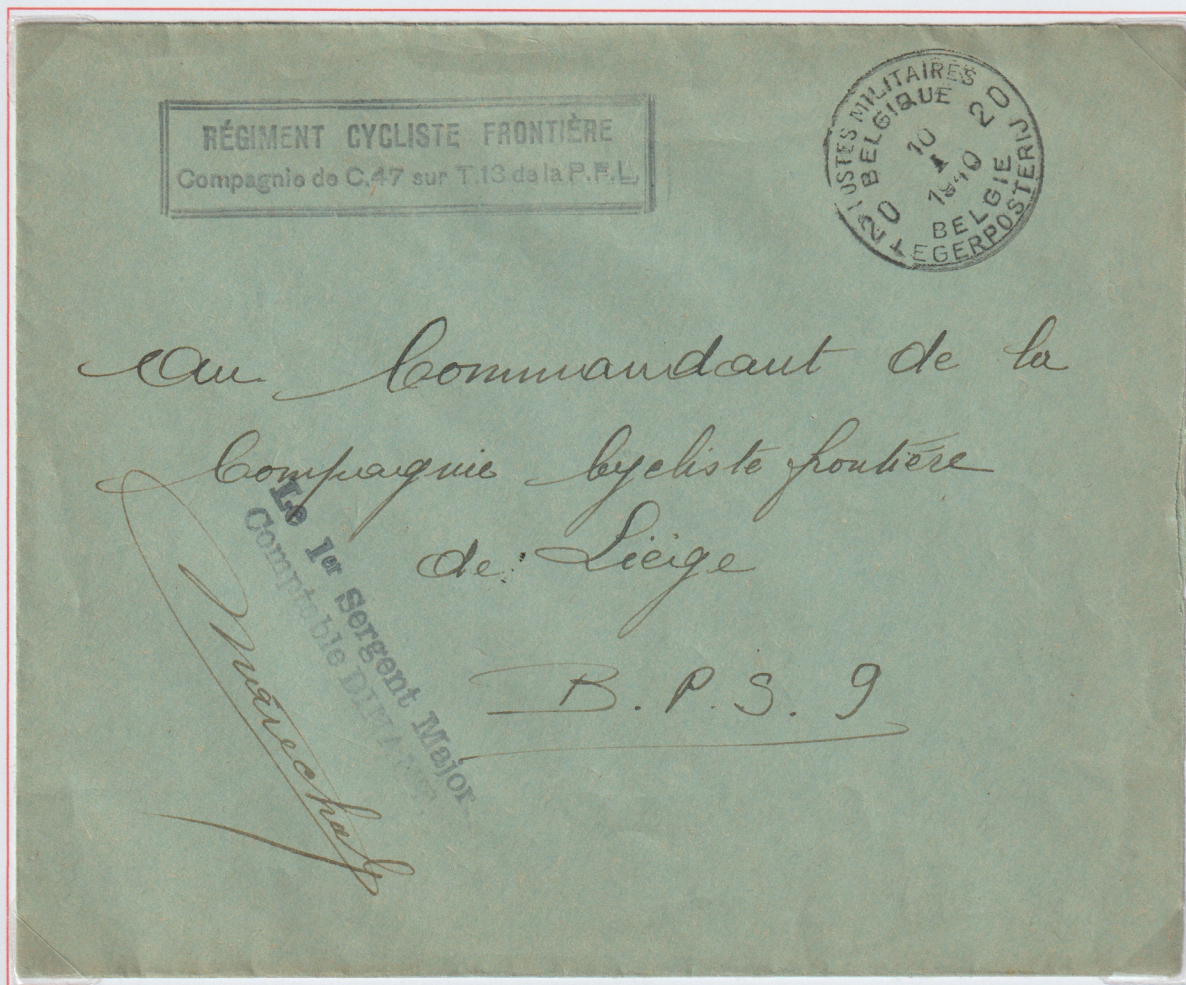 RÉGIMENT CYCLISTE FRONTIÈRE
Compagnie de C.47 sur T.13 de la P.F.L.
POSTES MILITAIRES
BELGIQUE
20
10
1940
20
BELGIE
LEGERPOSTERIJ
Au Commandant de la
Compagnie Cycliste frontière
de Liége
B.P.S. 9
Le 1er Sergent Major
Comptable DINANT.
Marechal